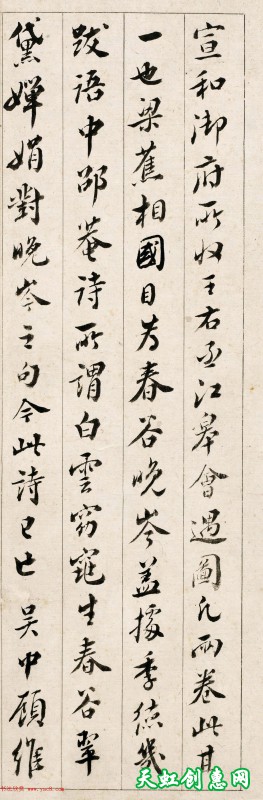 宣和御府所收王右丞江皋會遇圖凡兩卷此其
一也梁蕉相國目为春谷晚岑蓋據季德幾
跋語中邵菴詩所謂白雲窈窕生春谷翠
黛嬋娟對晚岑之句今此詩已亡 吴中顾維
天虹创惠网